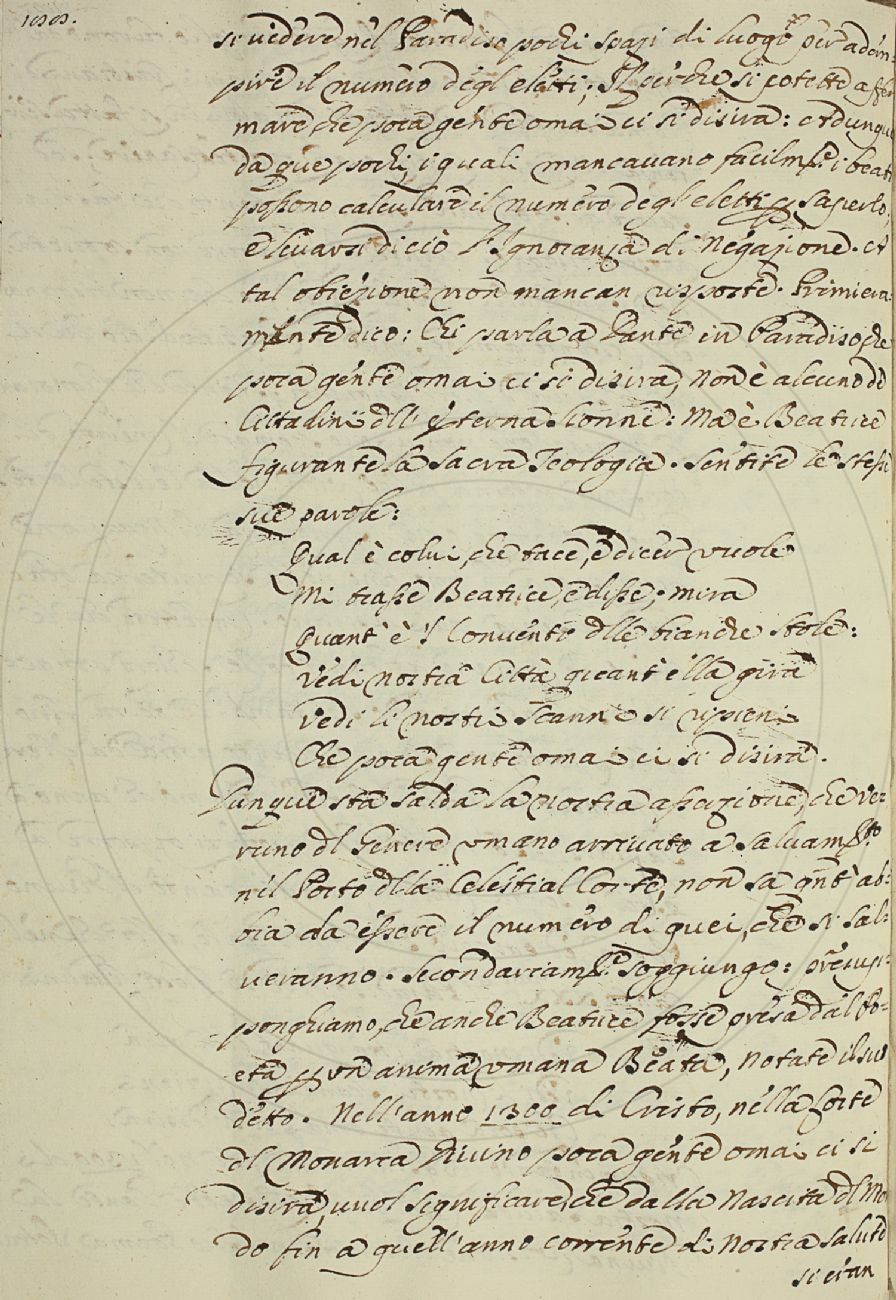 si vedere nel Paradiso pochi spazi di luogo per adem-
pire il numero degl'eletti; Il perche si potette affer
mare che poca gente omai ci si disira: adunque
da que pochi, i quali mancavano facilmte i beati
possono calculare il numero degl'eletti, e saperlo,
e levarsi di ciò l'Ignoranza di Negazione. A
tal obiezione non mancan risposte. Primiera
mente dico: Chi parla a Dante in Paradiso, che
poca gente omai ci si disira, non è alcuno de
Cittadini dll' eterna Sionne: Ma è Beatrice
figurante la sacra Teologia. Sentite le stesse
sue parole:
Qual è colui, che tace, e dicer vuole
Mi trasse Beatrice, e disse; mira
Quant' è 'l Convento dlle bianche stole:
Vedi nostra Città quant' ella gira
Vedi li nostri Scanni si ripieni
Che poca gente omai ci si disira.
Dunque sta salda la nostra asserzione, che ver
runo dl Genere umano arrivato a salvamto
nel Porto dlla Celestial Corte, non sa qnt' ab-
bia da essere il numero di quei, che si sal-
veranno. Secondariamte soggiungo: presup-
ponghiamo, che anche Beatrice fosse presa dal Po-
eta p un anima umana Beata, notate il suo
detto. Nell'anno 1300 di Cristo, nella Corte
dl Monarca Divino poca gente omai ci si
disira, vuol significare, che dalla Nascita dl Mon
do fin a quell'anno corrente di Nostra salute
si eran